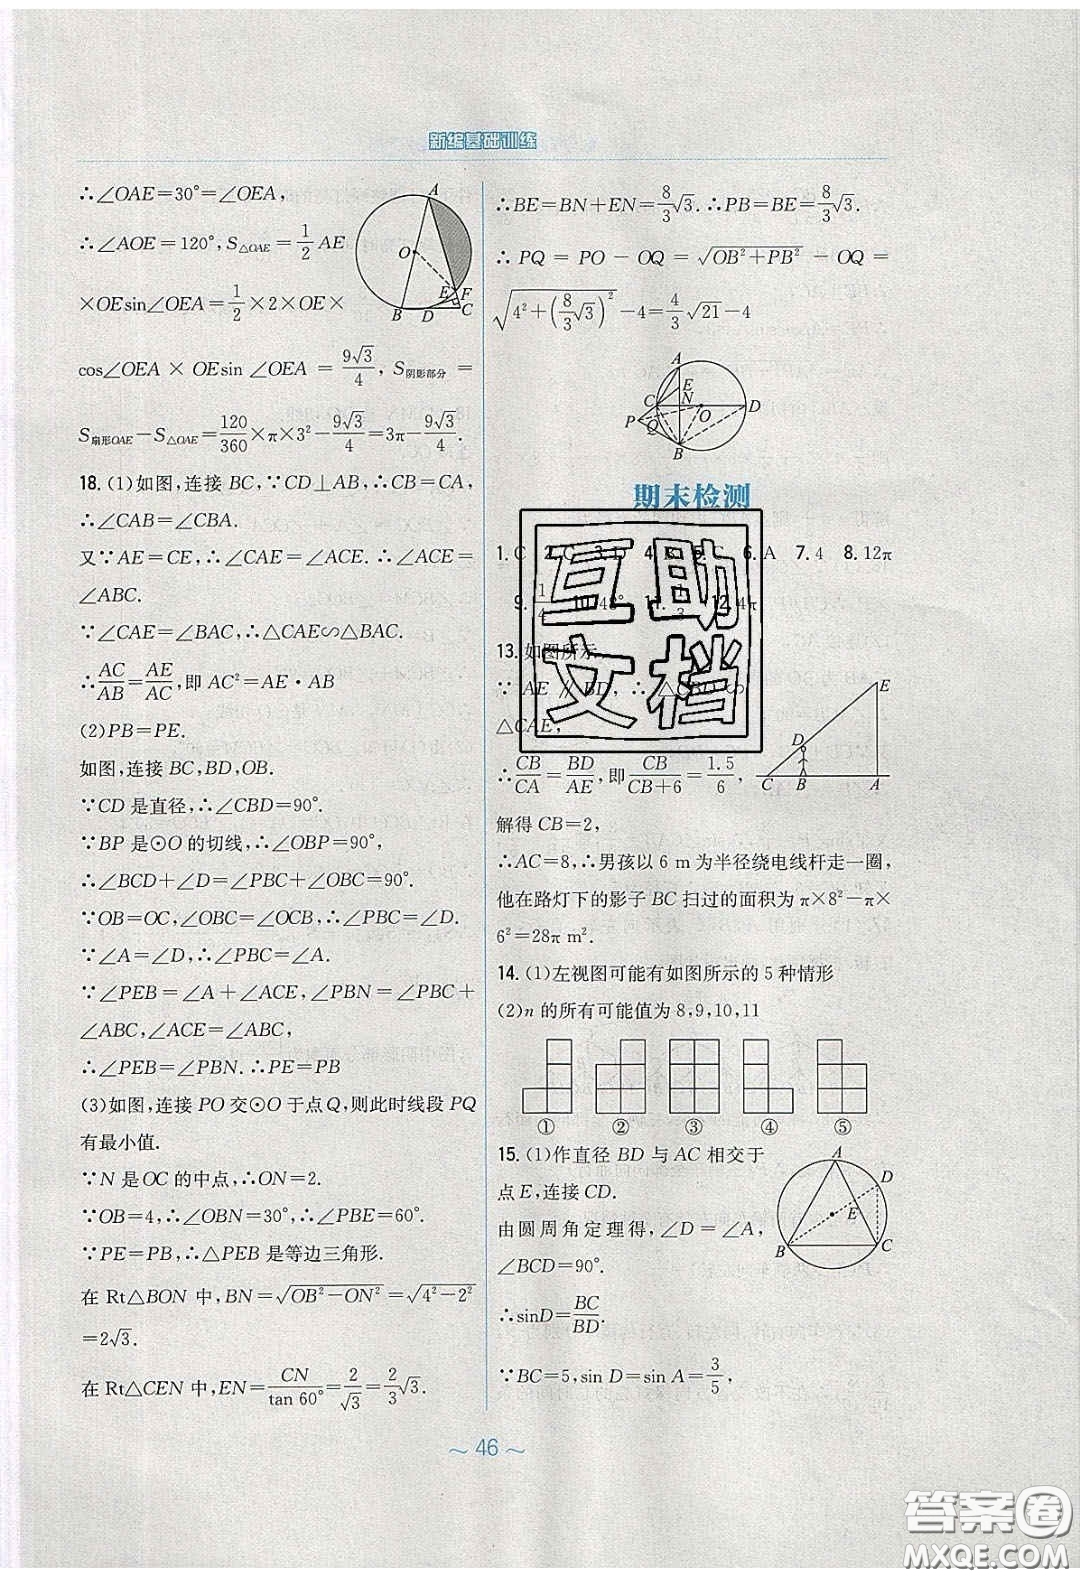 新编基础训练
∴∠OAE=30°=∠OEA,
∴∠AOE=120°,S△OAE=1/2 AE
×OEsin∠OEA=1/2×2×OE×
cos∠OEA×OEsin∠OEA=9√3/4,S阴影部分=
S扇形OAE-S△OAE=120/360×π×3²-9√3/4=3π-9√3/4.
18.(1)如图,连接BC,∵CD⊥AB,∴CB=CA,
∴∠CAB=∠CBA.
又∵AE=CE,∴∠CAE=∠ACE.∴∠ACE=
∠ABC.
∵∠CAE=∠BAC,∴△CAE∽△BAC.
∴AC/AB=AE/AC,即AC²=AE·AB
(2)PB=PE.
如图,连接BC,BD,OB.
∵CD是直径,∴∠CBD=90°.
∵BP是⊙O的切线,∴∠OBP=90°.
∴∠BCD+∠D=∠PBC+∠OBC=90°.
∵OB=OC,∠OBC=∠OCB,∴∠PBC=∠D.
∵∠A=∠D,∴∠PBC=∠A.
∵∠PEB=∠A+∠ACE,∠PBN=∠PBC+
∠ABC,∠ACE=∠ABC,
∴∠PEB=∠PBN.∴PE=PB
(3)如图,连接PO交⊙O于点Q,则此时线段PQ
有最小值.
∵N是OC的中点,∴ON=2.
∵OB=4,∴∠OBN=30°,∴∠PBE=60°.
∵PE=PB,∴△PEB是等边三角形.
在Rt△BON中,BN=√(OB²-ON²)=√(4²-2²)
=2√3.
在Rt△CEN中,EN=CN/tan 60°=2/√3=2/3√3.
A
O
E
F
B
D
C
∴BE=BN+EN=8/3√3.∴PB=BE=8/3√3.
∴PQ=PO-OQ=√(OB²+PB²)-OQ=
√(4²+(8/3√3)²)-4=4/3√21-4
A
E
C
N
O
D
P
Q
B
期末检测
1.C 2.C 6.A 7.4 8.12π
9.1/4 10.48° 12.4π
13.如图所示,
∵AE∥BD,∴△CBD∽
△CAE,
∴CB/CA=BD/AE,即CB/(CB+6)=1.5/6,
E
D
C
B
A
解得CB=2,
∴AC=8,∴男孩以6 m为半径绕电线杆走一圈,
他在路灯下的影子BC扫过的面积为π×8²-π×
6²=28π m².
14.(1)左视图可能有如图所示的5种情形
(2)n的所有可能值为8,9,10,11
① ② ③ ④ ⑤
15.(1)作直径BD与AC相交于
点E,连接CD.
由圆周角定理得,∠D=∠A,
∠BCD=90°.
∴sinD=BC/BD.
∵BC=5,sin D=sin A=3/5,
A
D
E
B
C
互助
文档
~ 46 ~
答案卷
MXQE.COM